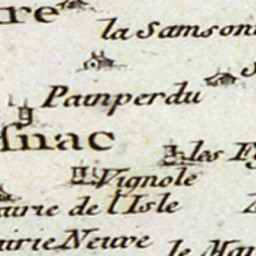 re
la Samson
Painperdu
ſnac
les F
Vignole
airie de l'Isle
airie Neuve
le Mar